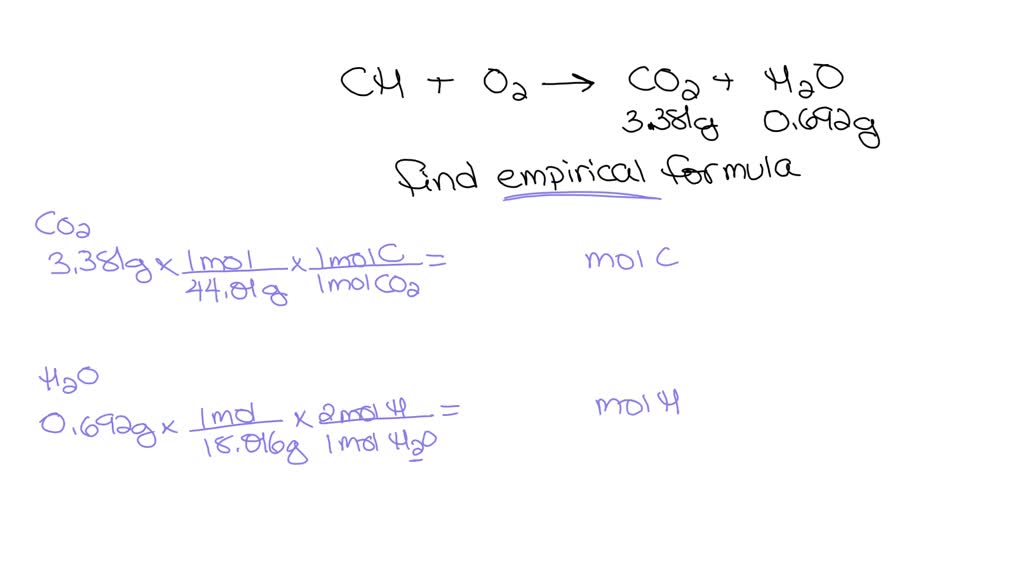 CH + O2 → CO2 + H2O
3.381g 0.692g
find empirical formula
CO2
3.381g × 1mol/44.01g × 1molC/1molCO2 = mol C
H2O
0.692g × 1mol/18.016g × 2molH/1molH2O = mol H